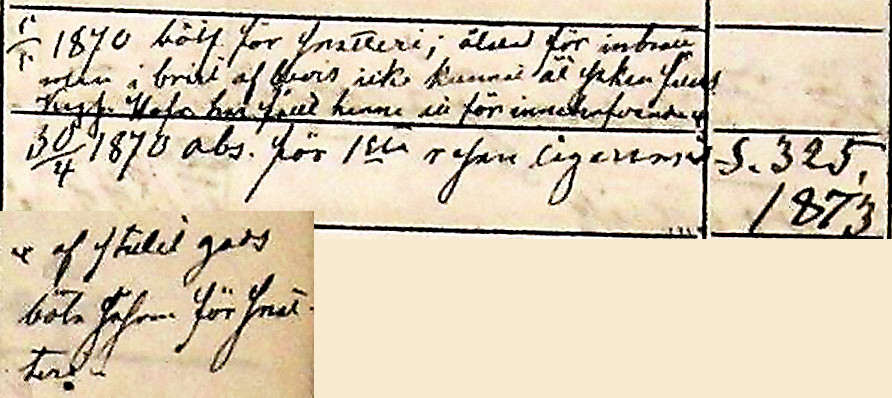 1870 böt för snatteri; åtal för inbrott
men i brist af bevis icke kunnat åt saken fällas
Hofr har fäld henne till för innehafvande x
30/4 1870 abs. för 1sta resan lägersmål S. 325,
1873
x af stulit gods
böta för snat-
teri.